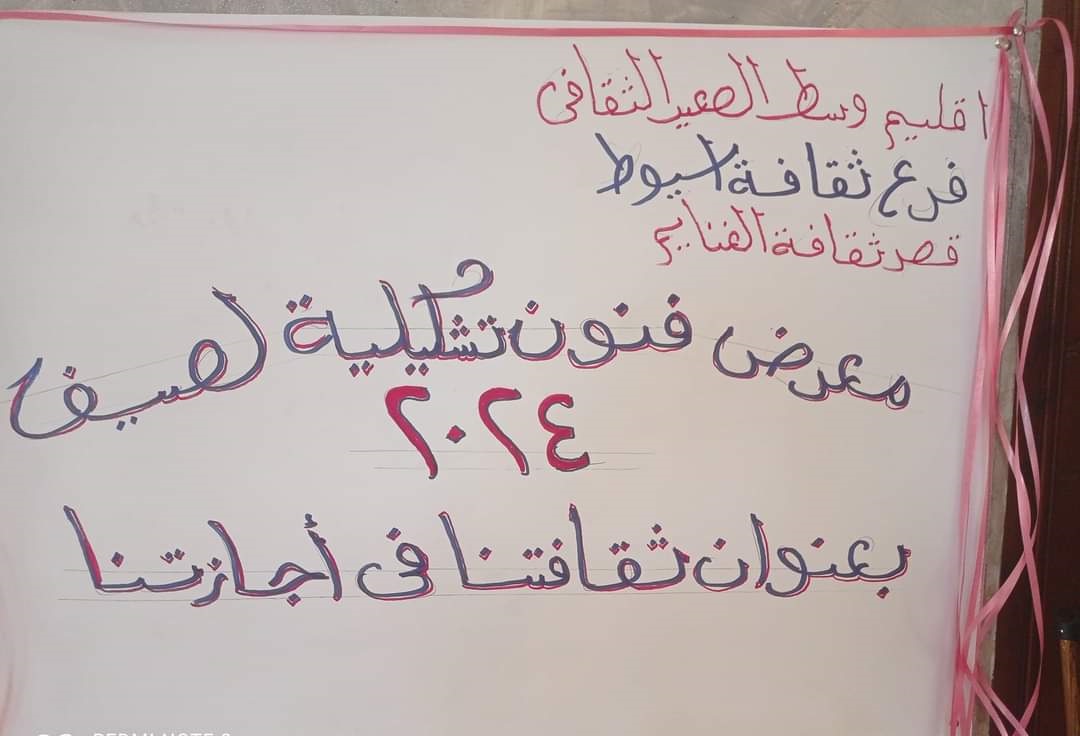 اقليم وسط الصعيد الثقافى
فرع ثقافة اسيوط
قصر ثقافة الغنايم
معرض فنون تشكيلية لصيف
٢٠٢٤
بعنوان ثقافتنا فى أجازتنا